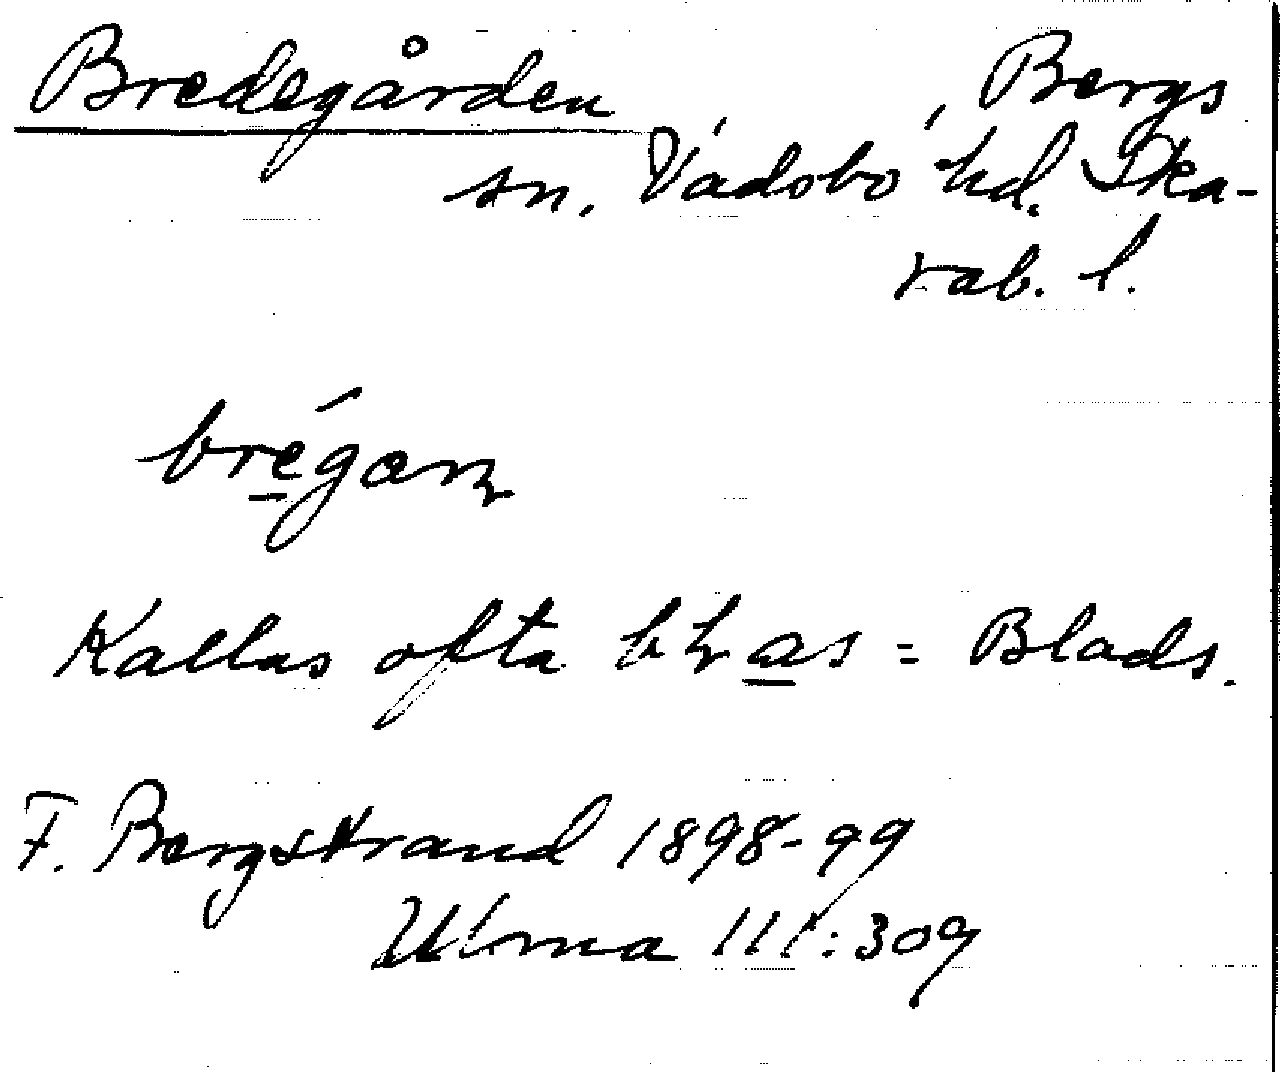 Bredegården, Bergs
sn. Vadsbo hd. Ska-
rab. l.
brégaɳ
Kallas ofta bɽas = Blads.
F. Bergstrand 1898-99
Ulma 111:309